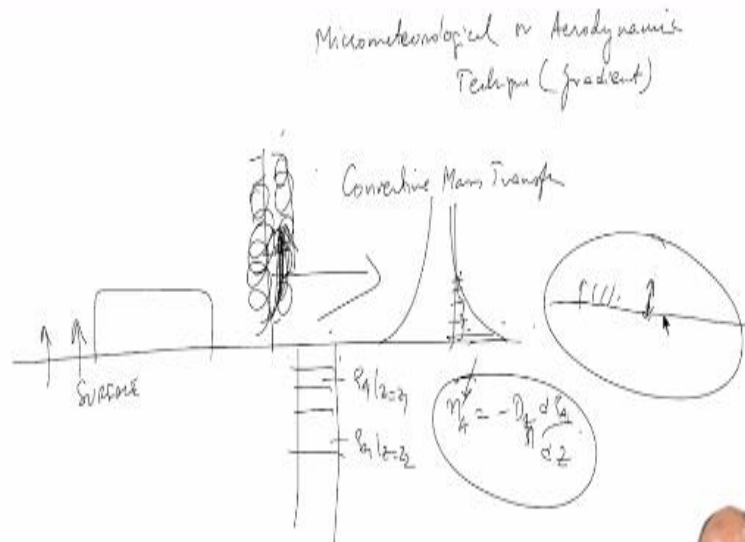 Micrometeorological or Aerodynamic
Technique (gradient)
Convective Mass Transfer
SURFACE
ρA|z=z1
ρA|z=z2
nA = -D dρA/dz